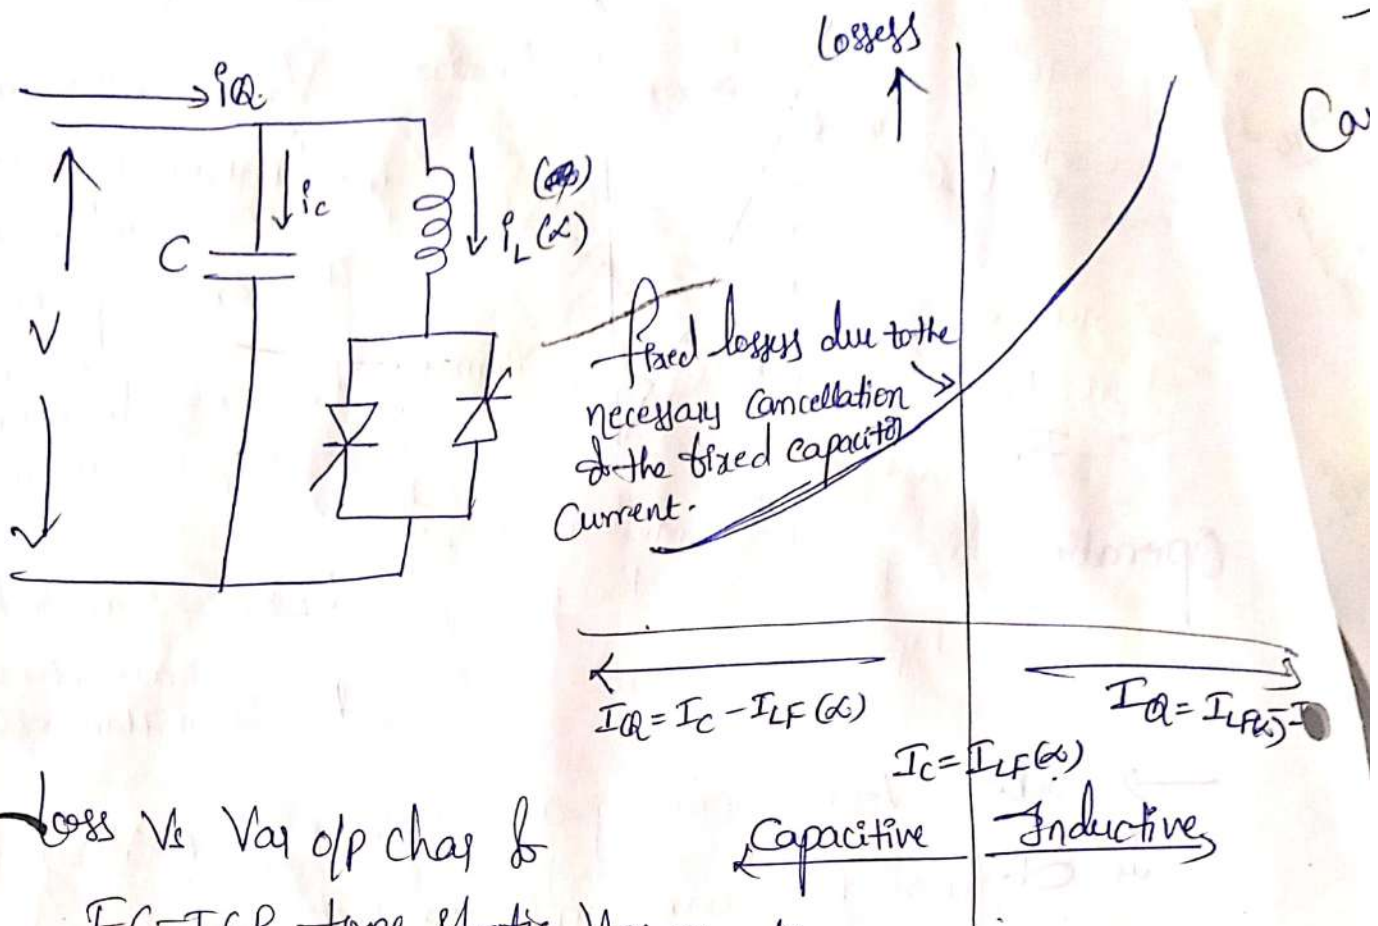 iQ
ic
C
iL (α)
V
Lossess
Ca
fixed lossess due to the
necessary cancellation
of the fixed capacitor
Current.
IQ = IC - ILF (α)
IQ = ILF(α) - I
IC = ILF(α)
Capacitive
Inductive
Loss Vs Var o/p char of
FC-TCR type static